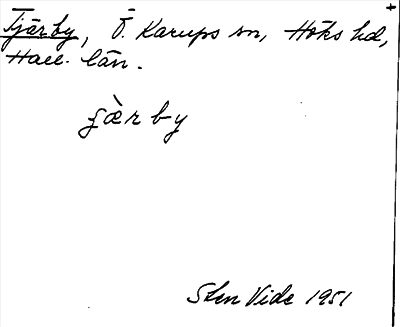 Tjärby, Ö. Karups sn, Höks hd,
Hall. län.
ʝæ̀r by
Sten Vide 1951